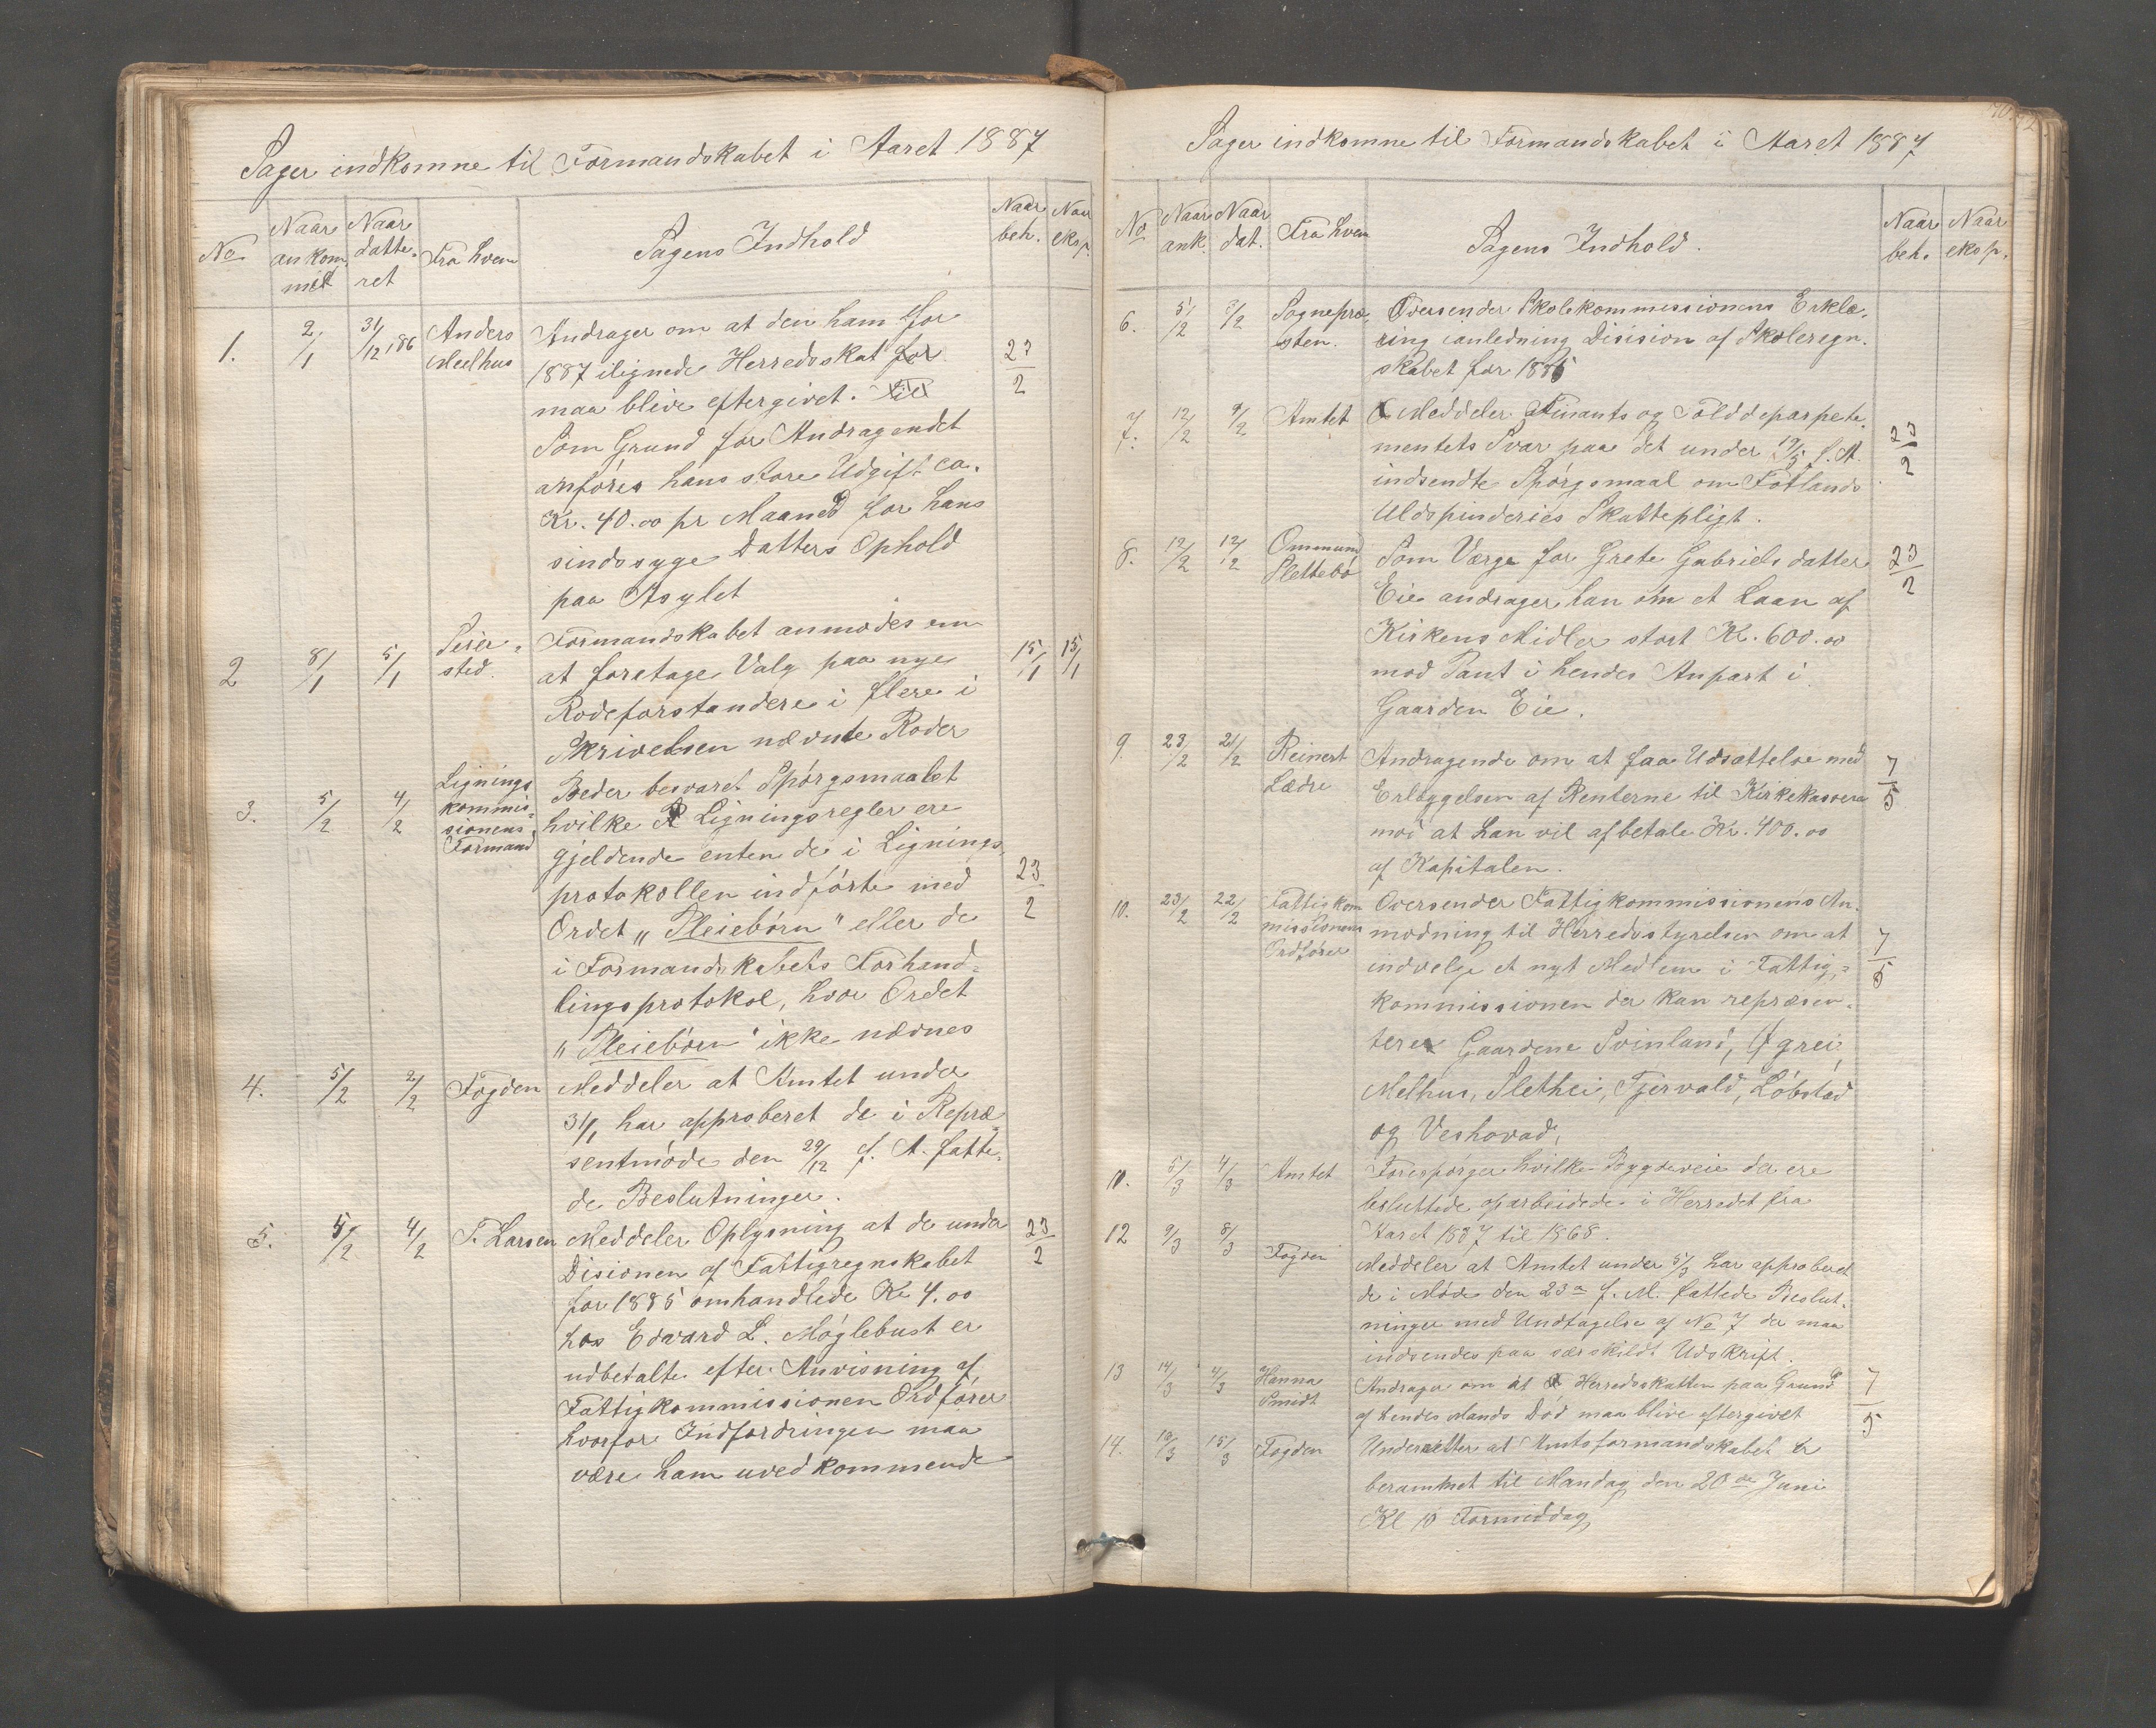 Sager indkomne til Formandskabet i Aaret 1887
No Naar ankommet Naar datteret Fra hvem Sagens Indhold Naar beh. Naar eksp.
1. 2/1 31/12 86 Anders Melhus Andrager om at den ham for
1887 ilignede Herredsskat for 23/2
maa blive eftergivet. til
Som Grund for Andragendet
anføres hans store Udgift ca.
Kr. 40.00 pr Maaned for hans
sindssyge Datters Ophold
paa Asylet
2 8/1 5/1 Formandskabet anmodes om
at foretage Valg paa nye 15/1 15/1
Rodeforstandere i flere i
Skrivelsen nævnte Roder
3. 5/2 4/2 Lignings kommissionens Formand Beder besvaret Spørgsmaalet
hvilke Ligningsregler ere
gjeldende enten de i Lignings-
protokollen indførte med 23/2
Ordet "Pleiebørn" eller de
i Formandskabets Forhand-
lingsprotokol, hvor Ordet
"Pleiebørn" ikke nævnes
4. 5/2 2/2 Fogden Meddeler at Amtet under
31/1 har approberet de i Repræ-
sentmøde den 29/12 f. A. fatte-
de Beslutninger.
5. 5/2 4/2 T. Larsen Meddeler Oplysning at de under 23/2
Disionen af Fattigregnskabet
for 1885 omhandlede Kr 4.00
hos Edvard L. Møglebust er
udbetalte efter Anvisning af
Fattigkommissionen Ordfører
hvorfor Indfordringen maa
være ham uvedkommende
Sager indkomne til Formandskabet i Aaret 1887
No Naar ank. Naar dat. Fra hvem Sagens Indhold. Naar beh. Naar eksp.
6. 5/2 3/2 Sognepræsten. Oversender Skolekommissionens Erklæ-
ring ianledning Disision af Skoleregn-
skabet for 1885
7. 12/2 9/2 Amtet Meddeler Finants og Tolddeparpete-
mentets Svar paa det under 19/5 f. A. 23/2
indsendte Spørgsmaal om Fotlands
Uldspinderies Skattepligt.
8. 12/2 12/2 Ommund Slettebø Som Værge for Grete Gabrielsdatter 23/2
Eie andrager han om et Laan af
Kirkens Midler stort Kr. 600.00
mod Pant i hendes Anpart i
Gaarden Eie.
9. 23/2 21/2 Reinert Lædre Andragende om at faa Udsættelse med 7/5
Erlæggelsen af Renterne til Kirkekassen
mod at han vil afbetale Kr. 400.00
af Kapitalen.
10. 23/2 22/2 Fattigkommissionens Ordfører Oversender Fattigkommissionens An-
modning til Herredsstyrelsen om at 7/5
indvelge et nyt Medlem i Fattig-
kommissionen der kan repræsen-
tere Gaardene Svinland, Øgrei,
Melhus, Slethei, Tjervald, Løbstad
og Veshovad,
11. 5/3 4/3 Amtet Forespørger hvilke Bygdeveie der ere
besluttede oparbeidede i Herredet fra
Aaret 1837 til 1868.
12 9/3 8/3 Fogden Meddeler at Amtet under 5/3 har approberet
de i Møde den 23de f. M. fattede Beslut-
ninger med Undtagelse af No 7 der maa
indsendes paa særskildt Udskrift.
13 14/3 4/3 Hanna Smidt Andrager om at Herredsskatten paa Grund 7/5
af hendes Mands Død maa blive eftergivet
14. 15/3 Fogden Underretter at Amtsformandskabet er
berammet til Mandag den 20de Juni
Kl 10 Formiddag